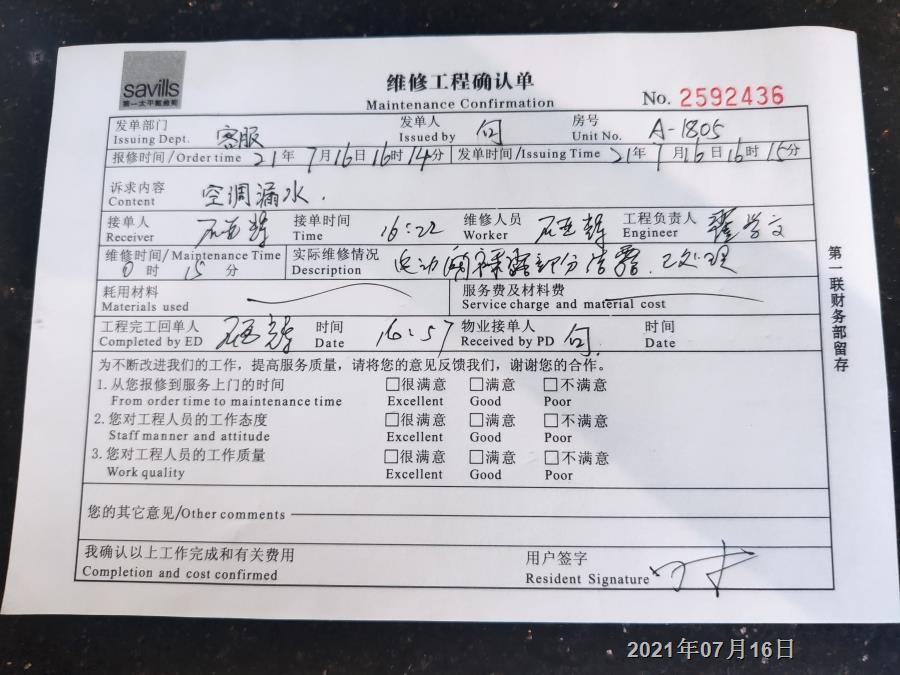 savills
第一太平戴维斯
维修工程确认单
Maintenance Confirmation
No. 2592436
发单部门 客服 发单人 房号 A-1805
Issuing Dept. Issued by Unit No.
报修时间/Order time 21年7月16日16时14分 发单时间/Issuing Time 21年7月16日16时15分
诉求内容 空调漏水.
Content
接单人 接单时间 16:22 维修人员 工程负责人
Receiver Time Worker Engineer
维修时间/Maintenance Time 实际维修情况
0时15分 Description 部分 处理
耗用材料 服务费及材料费
Materials used Service charge and material cost
工程完工回单人 时间 16:57 物业接单人 时间
Completed by ED Date Received by PD Date
为不断改进我们的工作，提高服务质量，请将您的意见反馈我们，谢谢您的合作。
1.从您报修到服务上门的时间 □很满意 □满意 □不满意
From order time to maintenance time Excellent Good Poor
2.您对工程人员的工作态度 □很满意 □满意 □不满意
Staff manner and attitude Excellent Good Poor
3.您对工程人员的工作质量 □很满意 □满意 □不满意
Work quality Excellent Good Poor
您的其它意见/Other comments
我确认以上工作完成和有关费用 用户签字
Completion and cost confirmed Resident Signature
第一联财务部留存
2021年07月16日